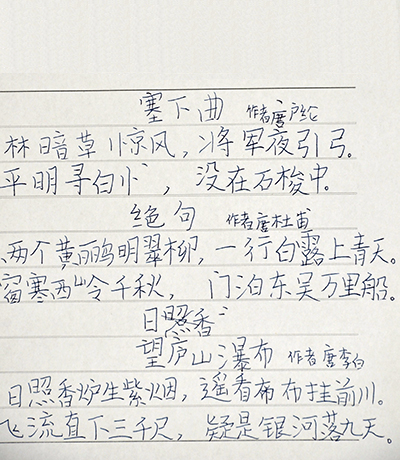 塞下曲 作者唐卢纶
林暗草惊风，将军夜引弓。
平明寻白忄，没在石梭中。
绝句 作者唐杜甫
两个黄鹂明翠柳，一行白露上青天。
窗寒西岭千秋，门泊东吴万里船。
日照香
望庐山瀑布 作者唐李白
日照香炉生紫烟，遥看布布挂前川。
飞流直下三千尺，疑是银河落九天。